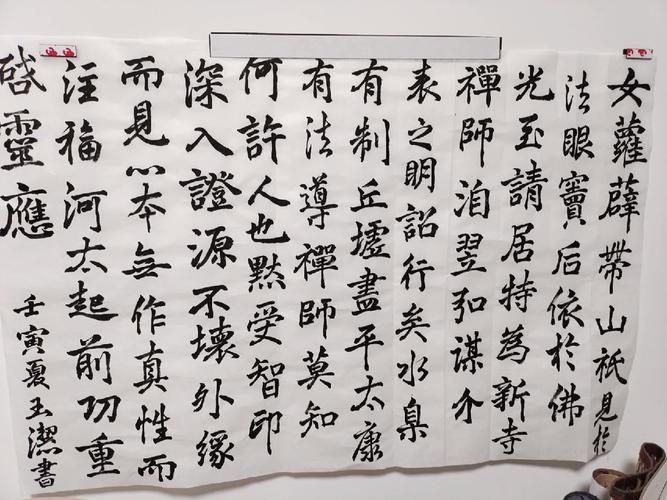 女蘿薜帶山祇見於
法眼竇后依於佛
光至請居特為新寺
禪師洎翌弘謀介
表之明詔行矣水臬
有制丘墟盡平太康
有法導禪師莫知
何許人也默受智印
深入證源不壞外緣
而見心本無作真性而
注福河太起前功重
啓靈應
壬寅夏玉潔書